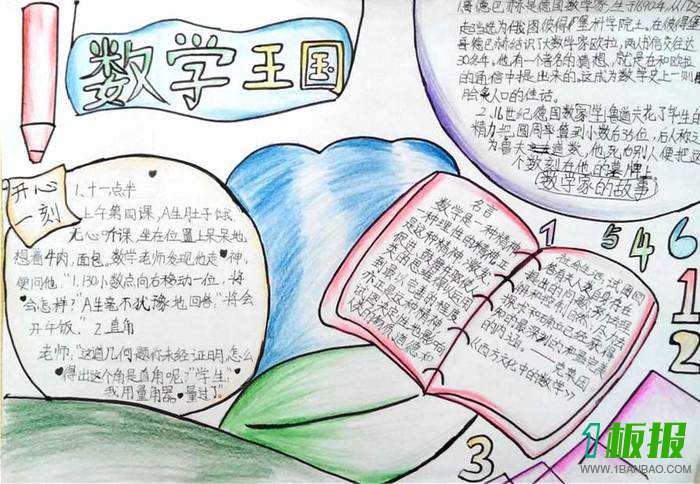 数学王国
开心
一刻
1、十一点半
上午第四课，A生肚子饿，
无心听课，坐在位置上呆呆地
想着牛肉、面包。数学老师发现他走神，
便问他，"1.130小数点向右移动一位，将
会怎样？"A生毫不犹豫地回答："将会
开午饭。" 2.直角
老师，"这道几何题尚未经证明，怎么
得出这个角是直角呢？"学生，"
我用量角器量过了。"
哥德巴赫是德国数学家，生于1690年，从1725
起当选为俄国彼得堡科学院士。在彼得堡
哥德巴赫结识了大数学家欧拉，两人书信交往达
30多年。他有一个著名的猜想，就是在和欧拉
的通信中提出来的。这成为数学史上一则脍
脍炙人口的佳话。
2.16世纪德国数学家鲁道夫花了毕生的
精力把圆周率算到小数后35位，后人称之
为鲁道夫数，他死后别人便把这
个数刻在他的墓碑上
(数学家的故事)
名言
数学是一种精神，
一种理性的精神。正
是这种精神，激发、
促进、鼓舞并驱使人
类的思维得以运用
到最完善的程度，
亦正是这种精神
试图决定性地影响
人类的物质、道德和
社会生活；试图回
答有关人类自身存在
提出的问题；努力去理
解和控制自然；尽力去
探求和确立已经获得
知识的最深刻的和最完美
的内涵。
——克莱因
《西方文化中的数学》
1 5 4 6
1
2
3
1板报
WWW.1BANBAO.COM